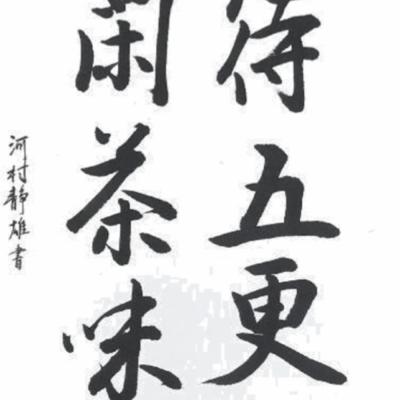 待五更
閑茶味
河村静雄書